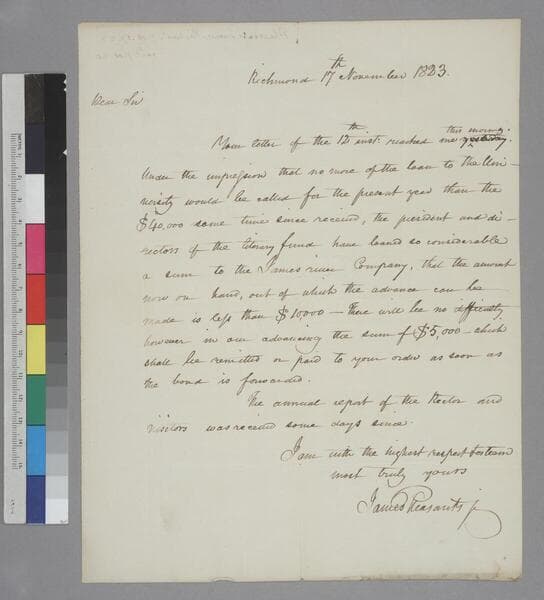 Richmond 17th November 1823.
Dear Sir
Your letter of the 12th inst. reached me yesterday. this morng.
Under the impression that no more of the loan to the Uni-
versity would be called for the present year than the
$40,000 some time since received, the president and di-
rectors of the literary fund have loaned so considerable
a sum to the James river Company, that the amount
now on hand, out of which the advance can be
made is less than $10000 — there will be no difficulty
however in our advancing the sum of $5,000 — which
shall be remitted or paid to your order as soon as
the bond is forwarded.
The annual report of the Rector and
visitors was received some days since
I am with the highest respect & esteem
most truly yours
James Pleasants jr